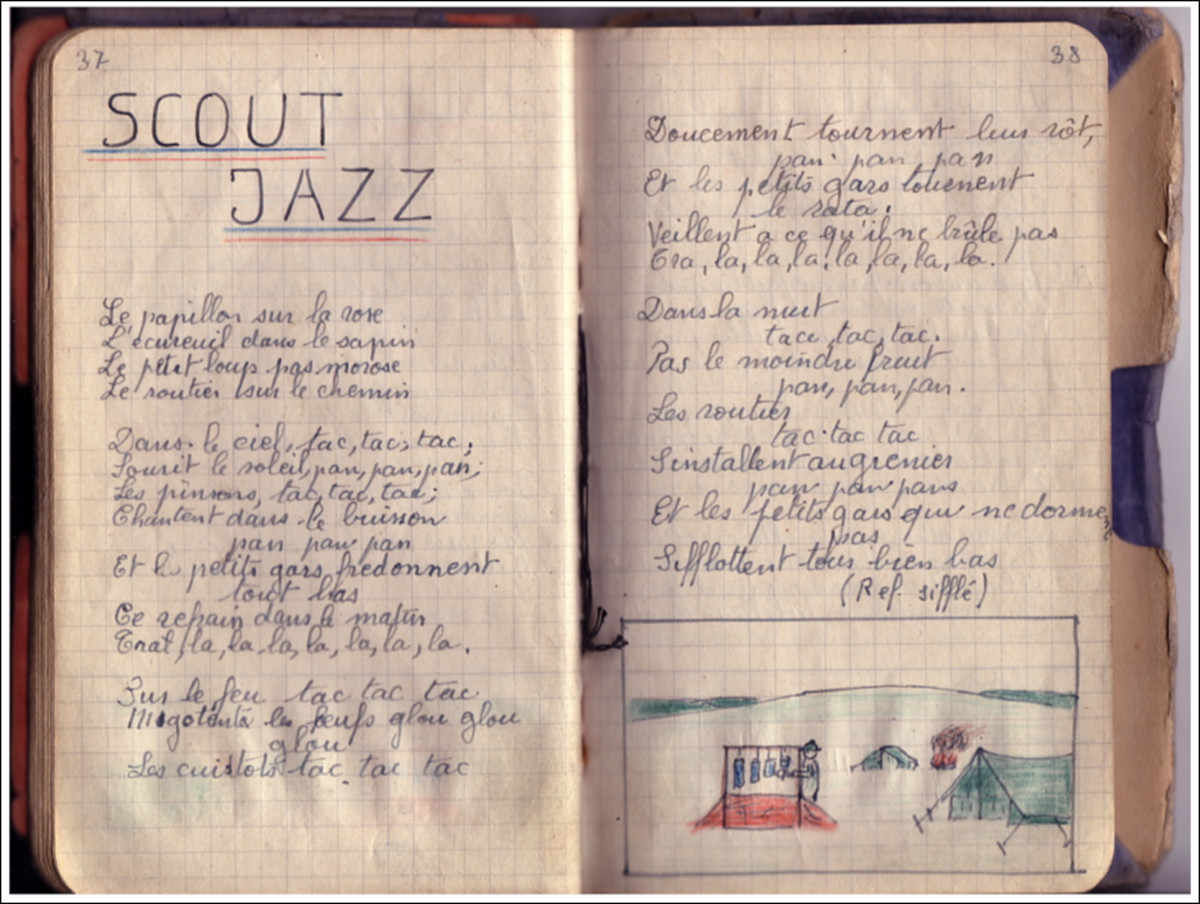 37
SCOUT
JAZZ
Le papillon sur la rose
L'écureuil dans le sapin
Le petit loup pas morose
Le routier sur le chemin
Dans le ciel, tac, tac, tac;
Sourit le soleil, pan, pan, pan;
Les pinsons, tac, tac, tac;
Chantent dans le buisson
pan pan pan
Et le petits gars fredonnent
tout bas
Ce refrain dans le matin
Trat, la, la, la, la, la, la, la.
Sur le feu tac tac tac
les glou glou
glou
Les cuistots tac tac tac
38
Doucement tournent leur rôt,
pan pan pan
Et les petits gars tournent
le rata.
Veillent a ce qu'il ne brûle pas
Tra, la, la, la, la, la, la, la.
Dans la nuit
tace, tac, tac.
Pas le moindre bruit
pan, pan, pan.
Les routier
tac tac tac
S'installent au grenier
pan pan pans
Et les petits gars qui ne dorment
pas
Sifflottent tous bien bas
(Ref. sifflé)